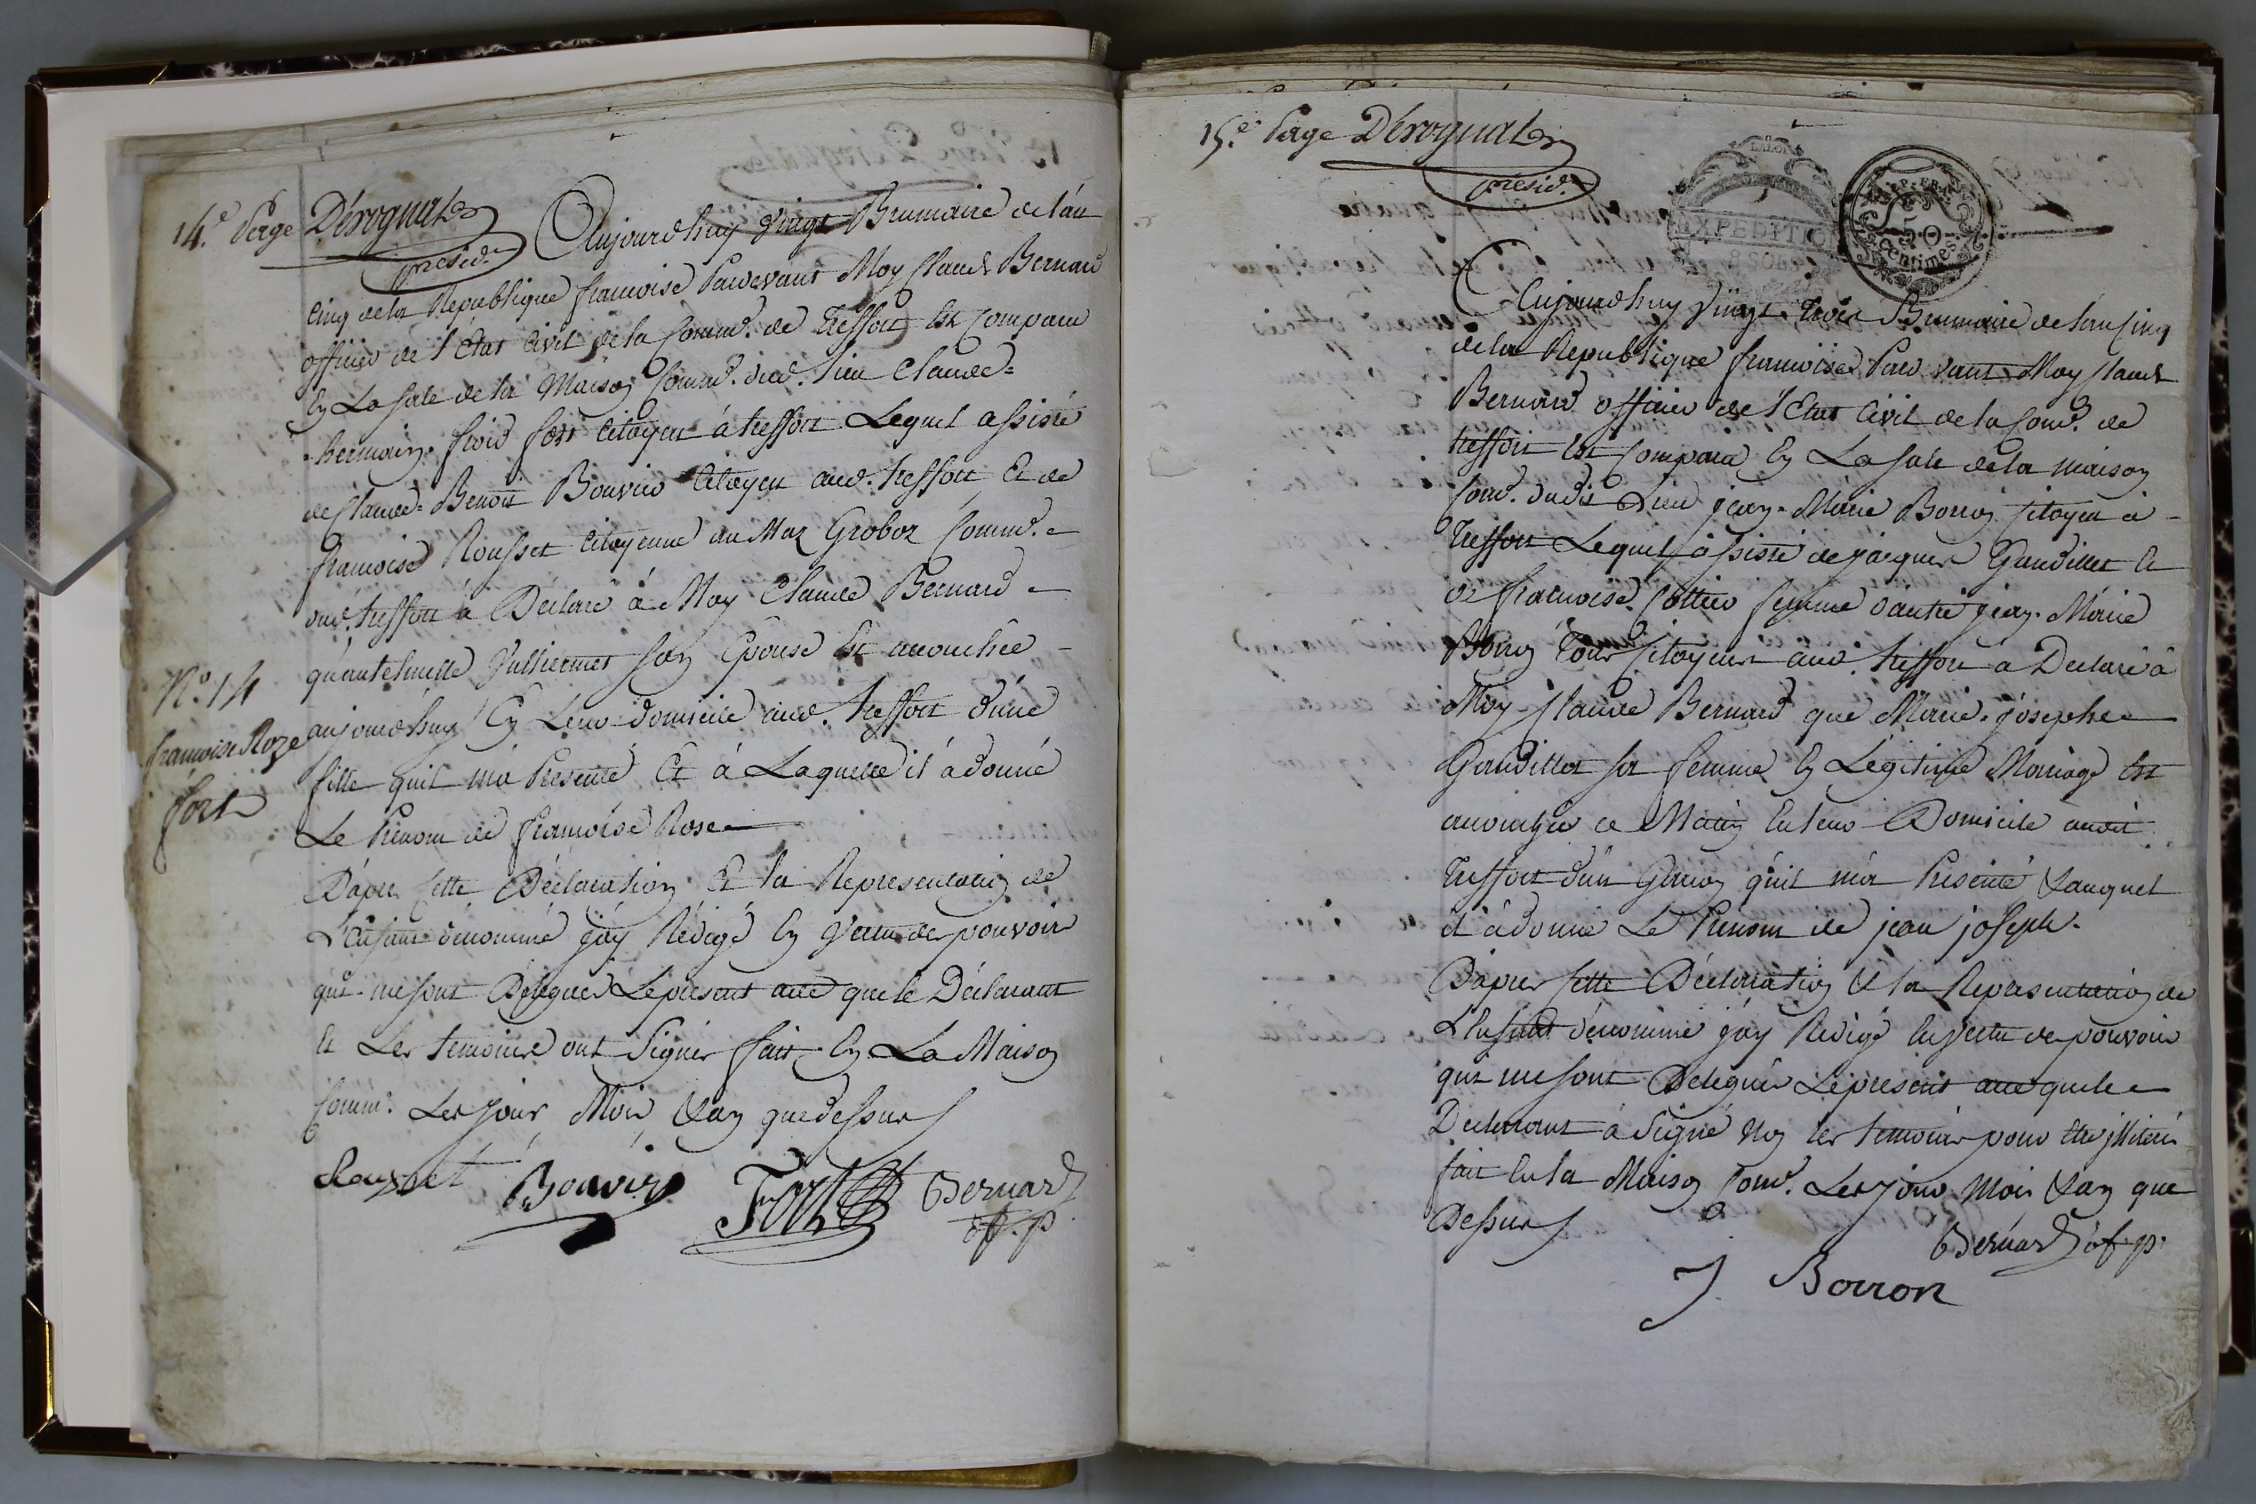 14.e Page Dérognat
présid.
Aujourdhuy vingt Brumaire de l'an
Cinq de la Republique francoise Pardevant Moy Claude Bernard
officier de l'Etat Civil de la Comm.e de Treffort Est Comparu
En La Sale de la Maison Comm.e dud. Lieu Claude-
hermain froid fort Citoyen à treffort Lequel assisté
de Claude-Benoit Bouvier Citoyen aud. treffort Et de
francoise Rousset Citoyenne au Maz Groboz Comm.e
dud. treffort à Déclaré à Moy Claude Bernard
qu'anthelmette Julliermet Son Epouse Est acouchée
aujourdhuy En Leur domicile aud. treffort d'une
fille quil m'a Presenté Et à Laquelle il à donné
Le Prenom de francoise Rose
N.o 14
francoise Roze
fort
D'apres Cette Déclaration Et la Representation de
L'enfant dénommé j'ay Rédigé En Vertu des pouvoirs
qui me sont Délégués Le present acte que le Déclarant
Et Les temoins ont Signés fait En La Maison
Comm.e Les jour Mois & an que dessus
Rousset Bouvier Fort Bernard
of. p
15.e Page Dérognat
présid.
LA LOI
EXPEDITION
8 SOLS
REP. FRA.
50
centimes
Aujourdhuy vingt trois Brumaire de l'an Cinq
de la Republique francoise Pard vant Moy Claude
Bernard officier de l'Etat Civil de la Com.e de
treffort Est Comparu En La Sale de la maison
Com.e dudit Lieu jean-Marie Borron Citoyen à
Treffort Lequel assisté de jacques Gaudillet Et
de francoise Cottier femme d'autre jean-Marie
Borron Tous Citoyens aud. treffort a Declaré à
Moy Claude Bernard que Marie-josephe
Gaudillet sa femme En Légitime Mariage Est
acouchée ce Matin En leur Domicile audit
Treffort d'un Garcon qu'il m'a Présenté & auquel
il à donné Le Prenom de jean joseph.
D'apres Cette Déclaration & la Representation de
L'Enfant dénommé j'ay Rédigé En Vertu des pouvoirs
qui me sont Delegués Le present acte que le
Declarant à Signé Non les temoins pour être illiterés
fait En la Maison Com.e Les jour Mois & an que
Dessus
Bernard of. p.
J. Borron